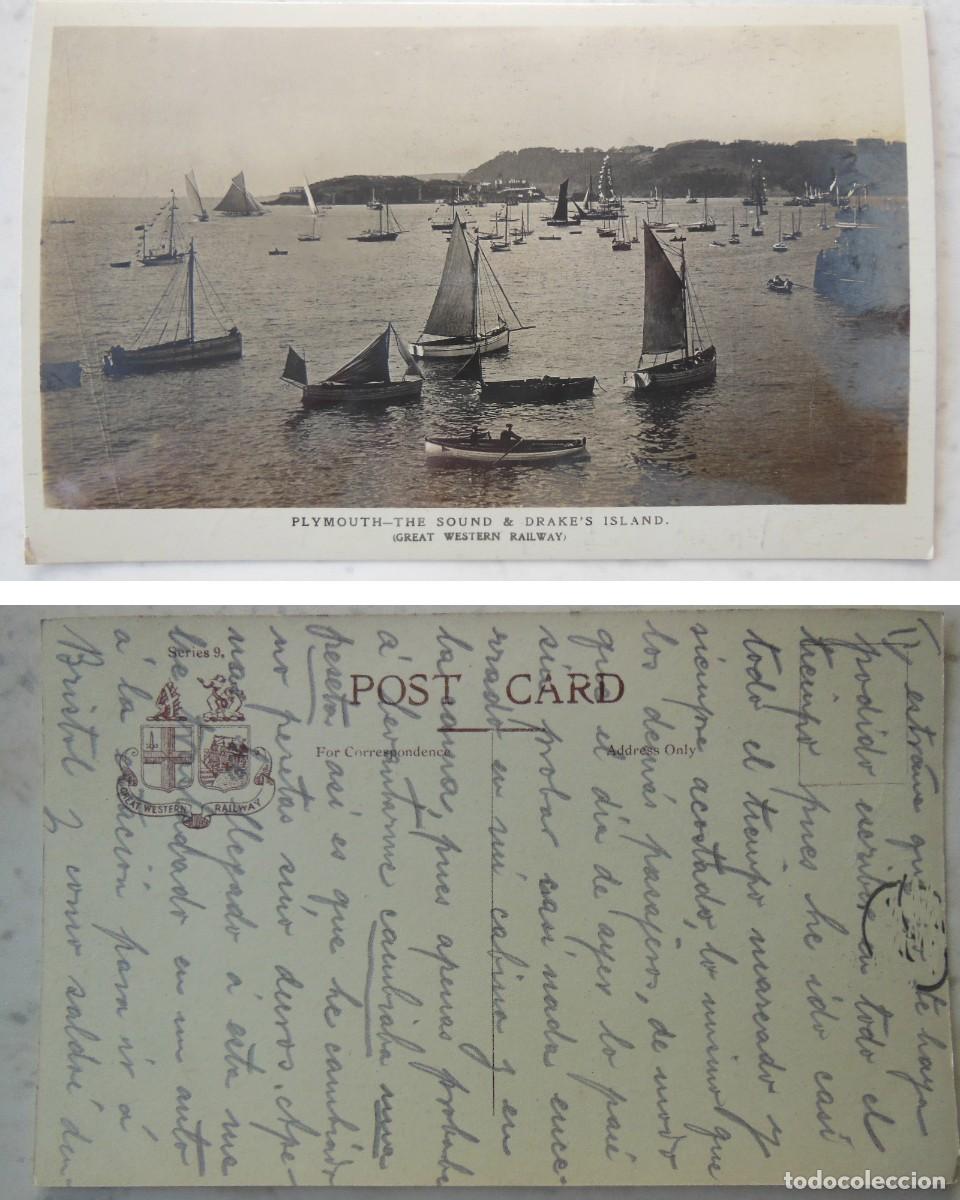 PLYMOUTH—THE SOUND & DRAKE'S ISLAND.
(GREAT WESTERN RAILWAY)
Series 9.
POST CARD
For Correspondence
Address Only
GREAT WESTERN RAILWAY
1) extrañe que te haya
podido escribir en todo el
tiempo pues he ido casi
todo el tiempo mareado y
siempre acostado, lo mismo que
los demás pasajeros, de modo
que el día de ayer lo pasé
sin probar casi nada ence-
rrado en mi cabina y en
la cama, pues apenas probaba
á levantarme cambiaba una
peseta así es que he cambiado
no pesetas sino duros. Ape-
nas llegado á esta me
he en un auto
a la estación para ir á
Bristol y como saldré den-
todocoleccion.net